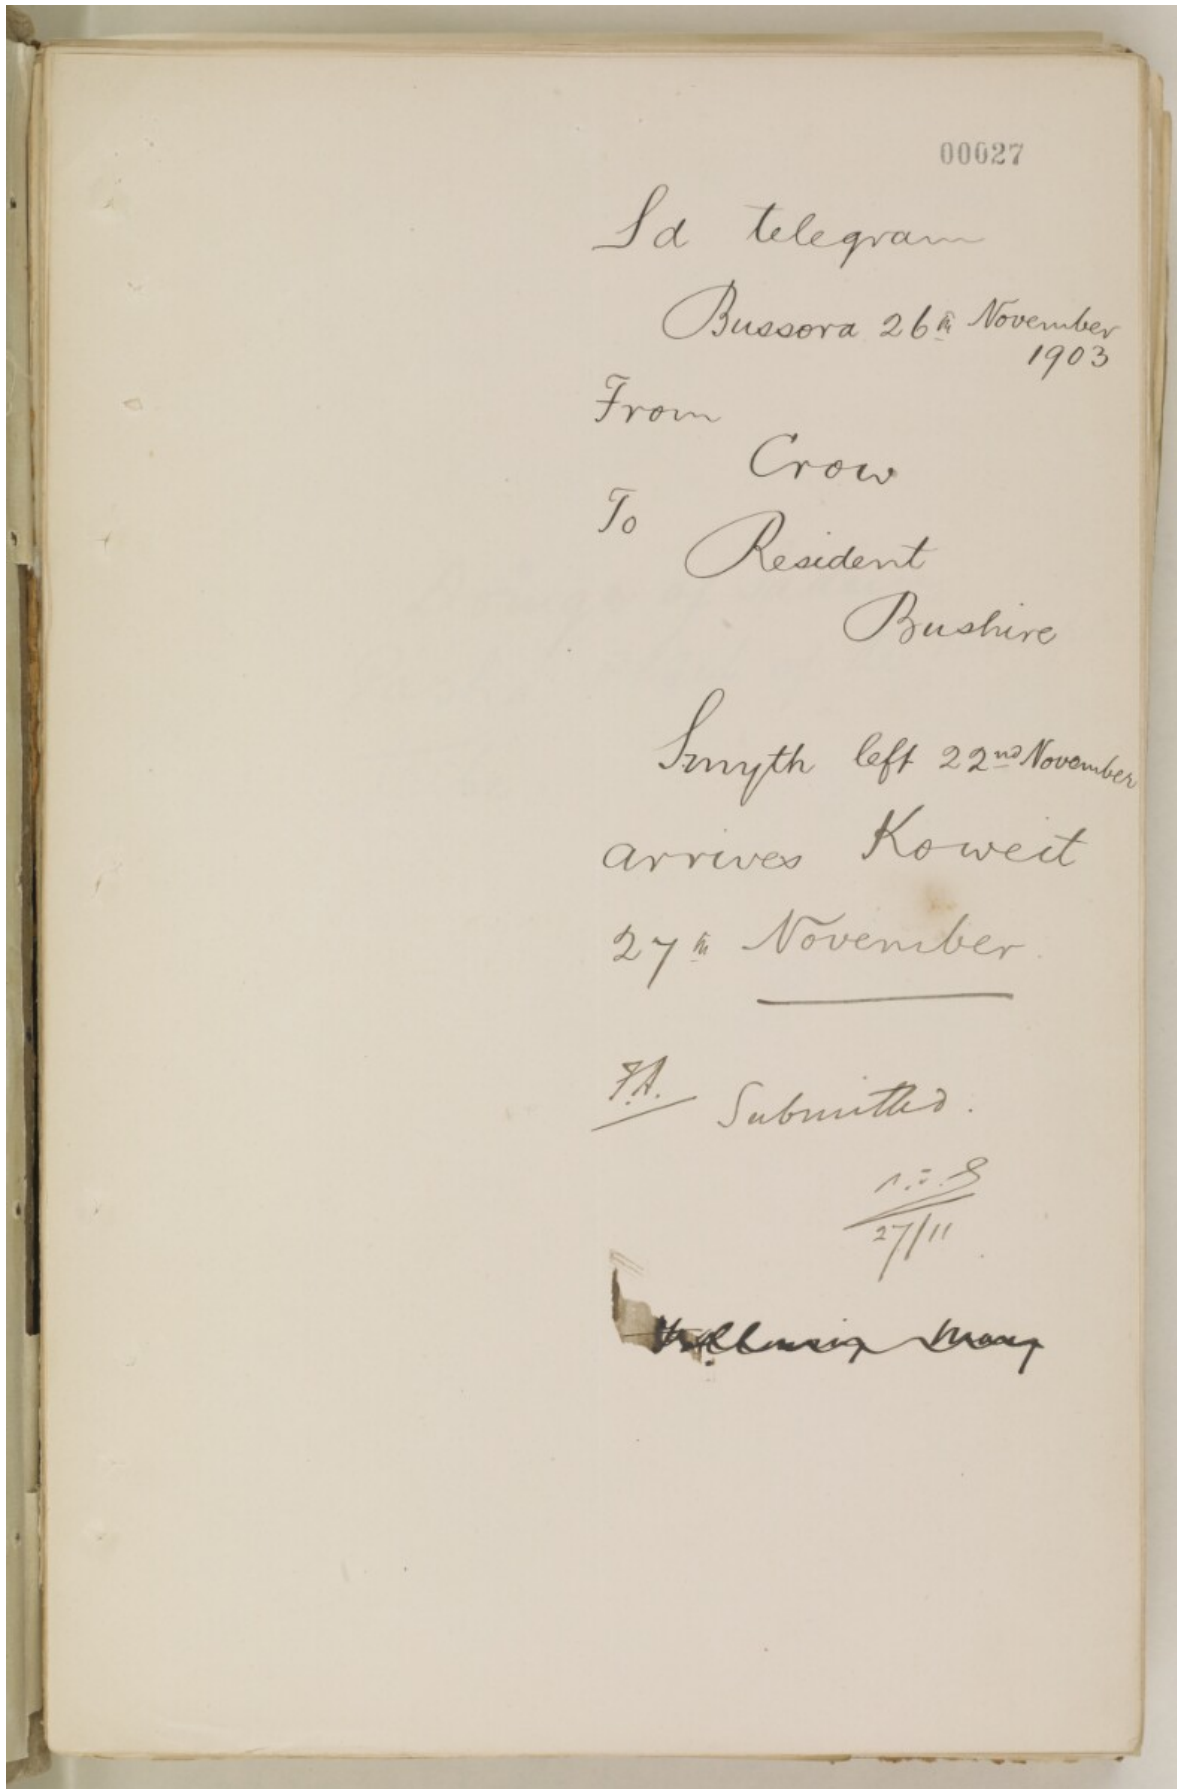 00027
Sd telegram
Bussora 26th November
1903
From
Crow
To
Resident
Bushire
Smyth left 22nd November
arrives Koweit
27th November.
F.A. Submitted.
27/11